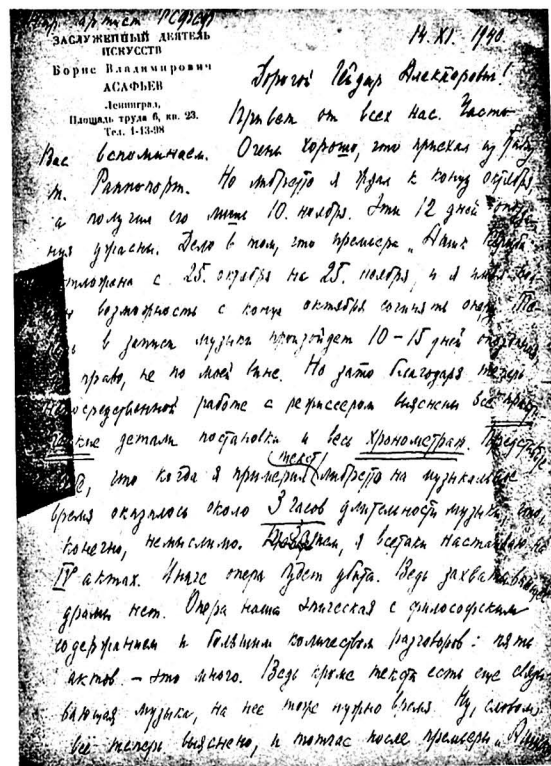 артист РСФСР
ЗАСЛУЖЕННЫЙ ДЕЯТЕЛЬ
ИСКУССТВ
Борис Владимирович
АСАФЬЕВ
Ленинград,
Площадь труда 6, кв. 23.
Тел. 1-13-98
14. XI. 1940.
Дорогой Гейдар Александрович!
Привет от всех нас. Часто
Вас вспоминаем. Очень хорошо, что приехал из
т. Раппопорт. Но либретто я ждал к концу октября,
а получил его лишь 10. ноября. Эти 12 дней
ужасны. Дело в том, что премьера
с 25. октября на 25. ноября, и я
возможность с конца октября сочинять оперу.
в записи музыки произойдет 10–15 дней
право, не по моей вине. Но зато благодаря теперь
непосредственной работе с режиссером выяснены все
детали постановки и весь хронометраж.
что когда я примерил текст либретто на музыкальное
время оказалось около 3 часов длительности музыки, что,
конечно, немыслимо. я всетаки настаиваю на
IV актах. Иначе опера будет убита. Ведь захватывающей
драмы нет. Опера наша эпическая с философским
содержанием и большим количеством разговоров: пять
актов – это много. Ведь кроме текста есть еще связу
вающая музыка, на нее тоже нужно время. Ну, словом
всё теперь выяснено, и тотчас после премьеры